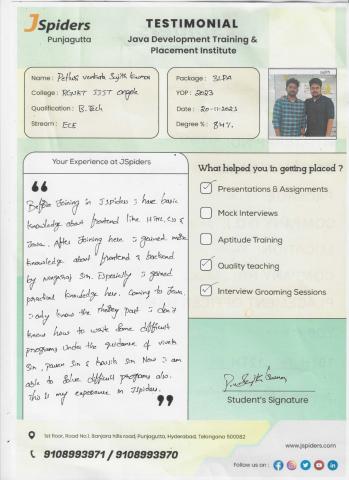 JSpiders
Punjagutta
TESTIMONIAL
Java Development Training &
Placement Institute
Name : Pethuri venkata Sujith Kumar
College : RGUKT IIIT ongole
Qualification : B.Tech
Stream : ECE
Package : 3LPA
YOP : 2023
Date : 20-11-2023
Degree % : 84%
Your Experience at JSpiders
Before Joining in Jspiders i have basic
knowledge about frontend like HTML, CSS &
Java. After Joining here i gained more
knowledge about frontend & backend
by nagaraj Sir. Especially i gained
practical knowledge here. Coming to Java,
i only know the theory part i don't
know how to write some difficult
programs under the guidance of vivek
Sir, pavan Sir & Sir. Now i am
able to solve difficult programs also.
This is my experience in JSpiders.
What helped you in getting placed ?
Presentations & Assignments
Mock Interviews
Aptitude Training
Quality teaching
Interview Grooming Sessions
Student's Signature
1st floor, Road No.1, Banjara hills road, Punjagutta, Hyderabad, Telangana 500082
9108993971 / 9108993970
www.jspiders.com
Follow us on :